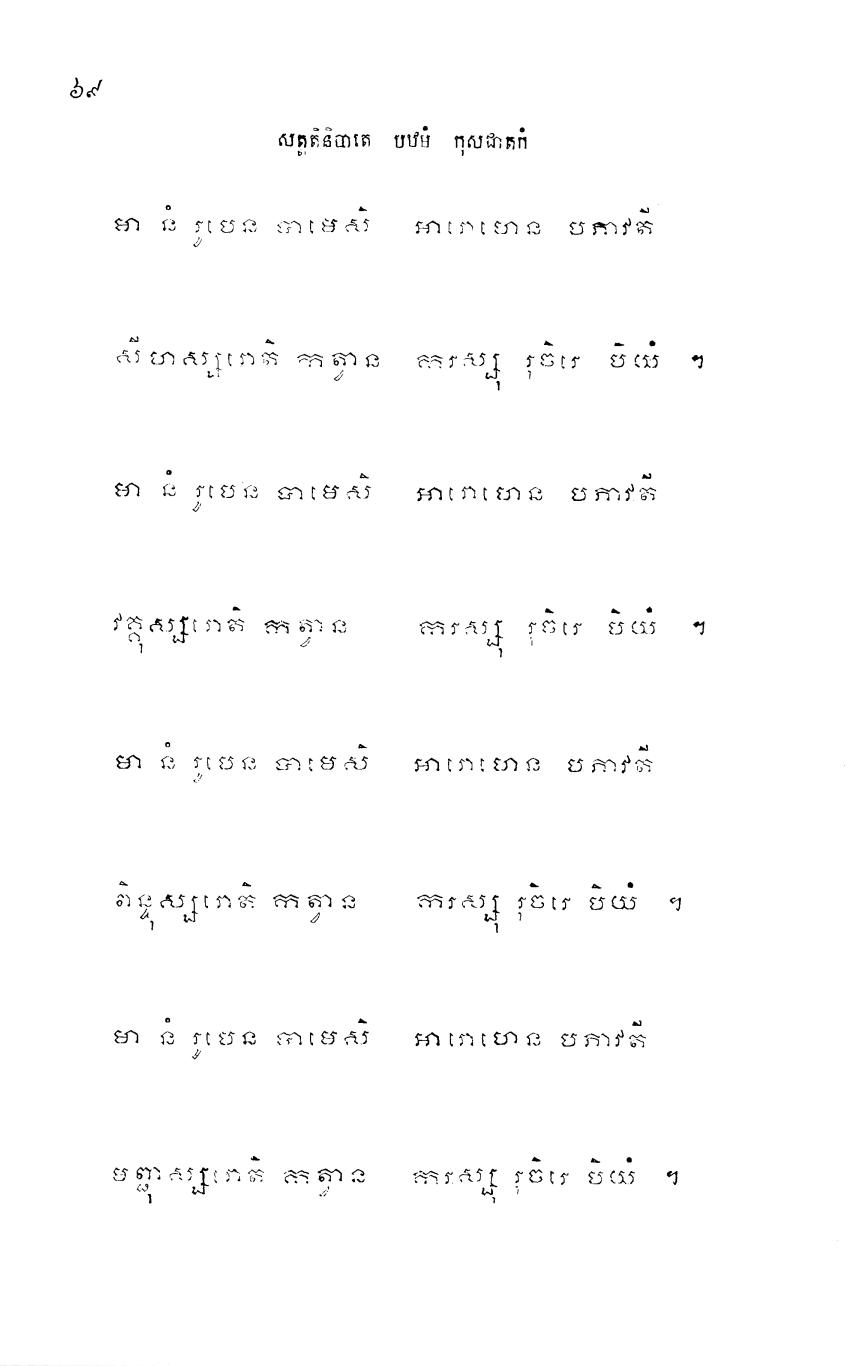 ៦៩
សត្តតិនិបាតេ បឋមំ កុសជាតកំ
មា នំ រូបេន បាមេសិ អារោហេន បភាវតី
សីហស្សរោតិ កត្វាន ករស្សុ រុចិរេ បិយំ ។
មា នំ រូបេន បាមេសិ អារោហេន បភាវតី
វគ្គុស្សរោតិ កត្វាន ករស្សុ រុចិរេ បិយំ ។
មា នំ រូបេន បាមេសិ អារោហេន បភាវតី
ពិន្ទុស្សរោតិ កត្វាន ករស្សុ រុចិរេ បិយំ ។
មា នំ រូបេន បាមេសិ អារោហេន បភាវតី
មញ្ជុស្សរោតិ កត្វាន ករស្សុ រុចិរេ បិយំ ។